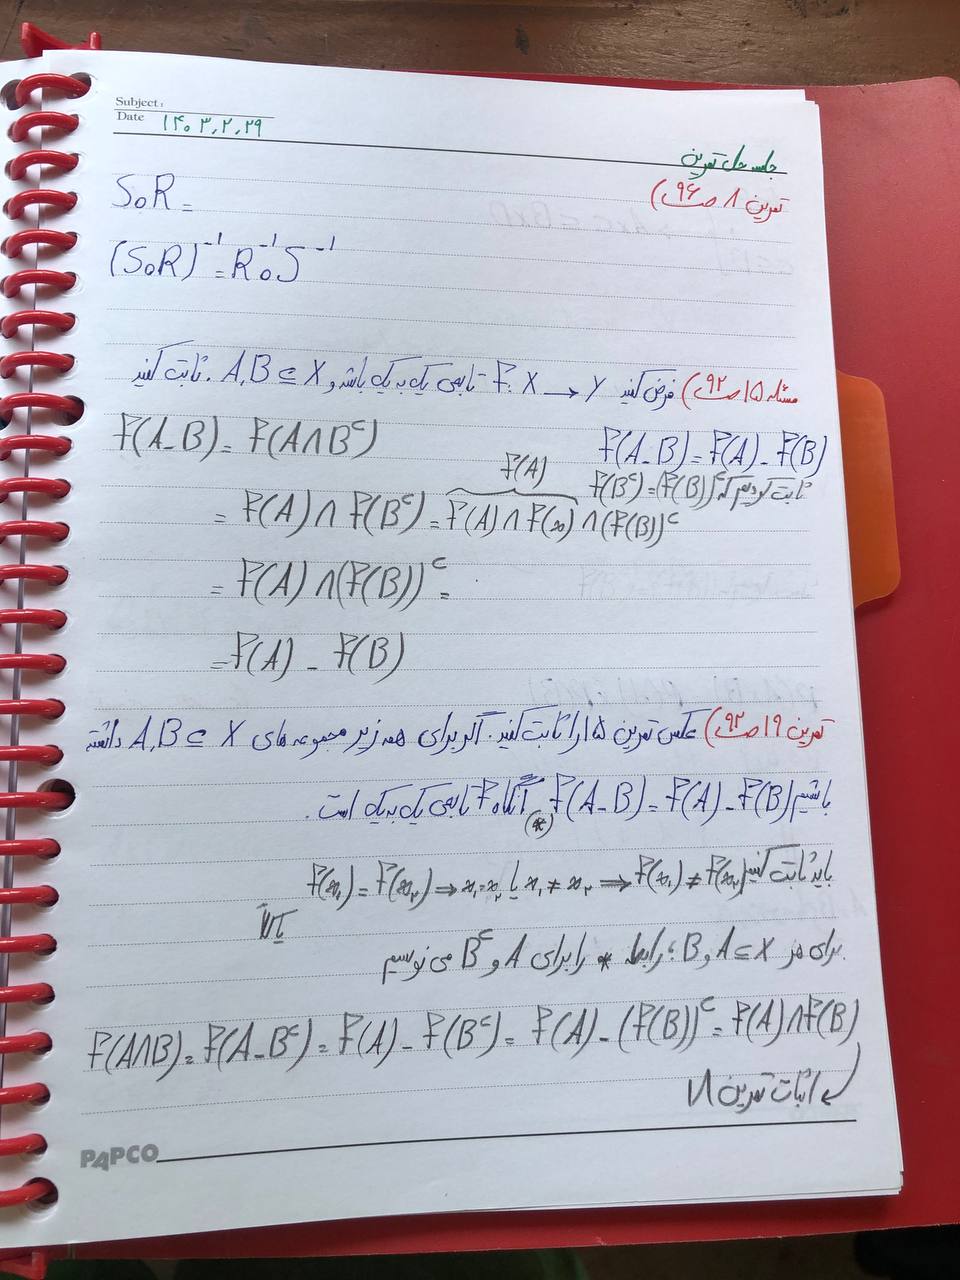 Subject:
Date ۱۴۰۳,۲,۲۹
جلسه حل تمرین
تمرین ۸ ص ۹۶)
SoR =
(SoR)⁻¹ = R⁻¹ o S⁻¹
مسئله ۱۵ ص ۹۲) فرض کنید f: X → Y تابعی یک به یک باشد و A,B ⊆ X. ثابت کنید
f(A-B) = f(A) - f(B)
f(A-B) = f(A∩Bᶜ)
ثابت کردیم که f(Bᶜ) = (f(B))ᶜ
f(A)
= f(A) ∩ f(Bᶜ) = f(A) ∩ f(x) ∩ (f(B))ᶜ
= f(A) ∩ (f(B))ᶜ =
= f(A) - f(B)
تمرین ۱۹ ص ۹۲) عکس تمرین ۱۵ را ثابت کنید. اگر برای همه زیر مجموعه های A,B ⊆ X داشته
باشیم f(A-B) = f(A) - f(B) آنگاه f تابعی یک به یک است.
(*)
باید ثابت کنیم f(x₁) = f(x₂) ⇒ x₁ = x₂ یا x₁ ≠ x₂ ⇒ f(x₁) ≠ f(x₂)
برای هر B,A ⊆ X؛ رابطه * را برای A و Bᶜ می نویسیم
f(A∩B) = f(A-Bᶜ) = f(A) - f(Bᶜ) = f(A) - (f(B))ᶜ = f(A)∩f(B)
اثبات تمرین ۱۸
PAPCO